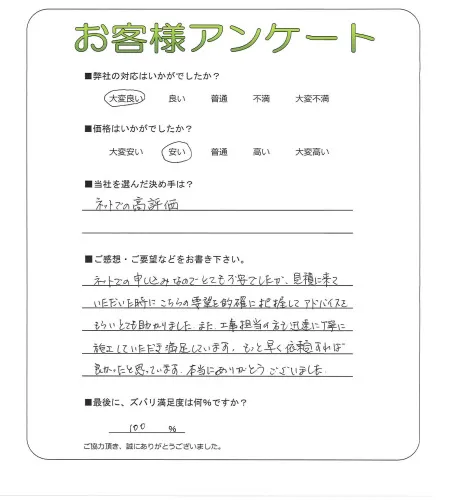 お客様アンケート
■弊社の対応はいかがでしたか？
大変良い 良い 普通 不満 大変不満
■価格はいかがでしたか？
大変安い 安い 普通 高い 大変高い
■当社を選んだ決め手は？
ネットでの高評価
■ご感想・ご要望などをお書き下さい。
ネットでの申し込みなのでとても不安でしたが、見積に来て
いただいた時にこちらの要望を的確に把握してアドバイスを
もらいとても助かりました。また、工事担当の方も迅速に丁寧に
施工していただき満足しています。もっと早く依頼すれば
良かったと思っています。本当にありがとうございました。
■最後に、ズバリ満足度は何%ですか？
100 %
ご協力頂き、誠にありがとうございました。